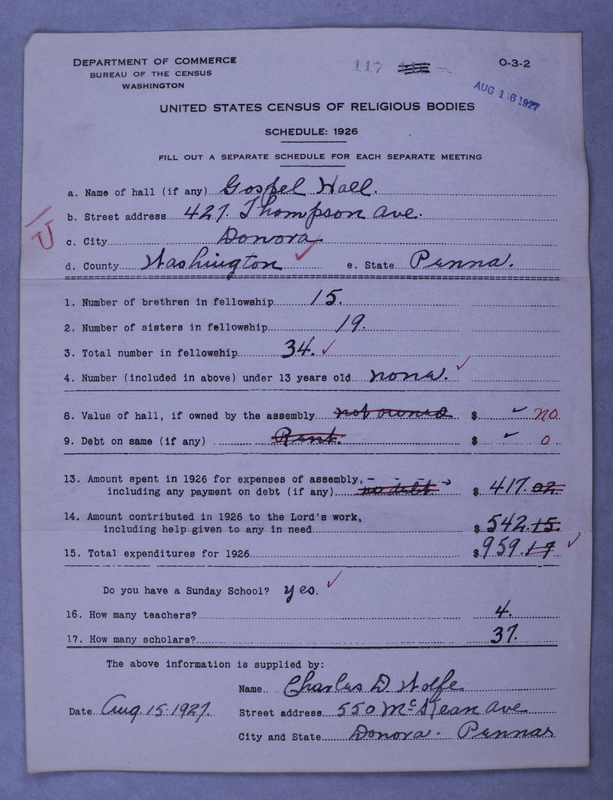 DEPARTMENT OF COMMERCE
BUREAU OF THE CENSUS
WASHINGTON
117
O-3-2
AUG 16 1927
UNITED STATES CENSUS OF RELIGIOUS BODIES
SCHEDULE: 1926
FILL OUT A SEPARATE SCHEDULE FOR EACH SEPARATE MEETING
a. Name of hall (if any) Gospel Hall.
b. Street address 427. Thompson ave.
c. City Donora
d. County Washington e. State Penna.
1. Number of brethren in fellowship 15.
2. Number of sisters in fellowship 19.
3. Total number in fellowship 34.
4. Number (included in above) under 13 years old nona.
8. Value of hall, if owned by the assembly not owned $ no
9. Debt on same (if any) Rent. $ 0
13. Amount spent in 1926 for expenses of assembly,
including any payment on debt (if any) no debt $ 417.02
14. Amount contributed in 1926 to the Lord's work,
including help given to any in need $ 542.15
15. Total expenditures for 1926 $ 959.17
Do you have a Sunday School? yes.
16. How many teachers? 4.
17. How many scholars? 37.
The above information is supplied by:
Name Charles D. Wolfe
Date Aug. 15. 1927. Street address 550 McKean ave
City and State Donora - Penna